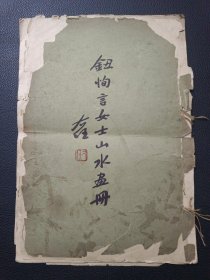 鈕恂言女士山水画冊